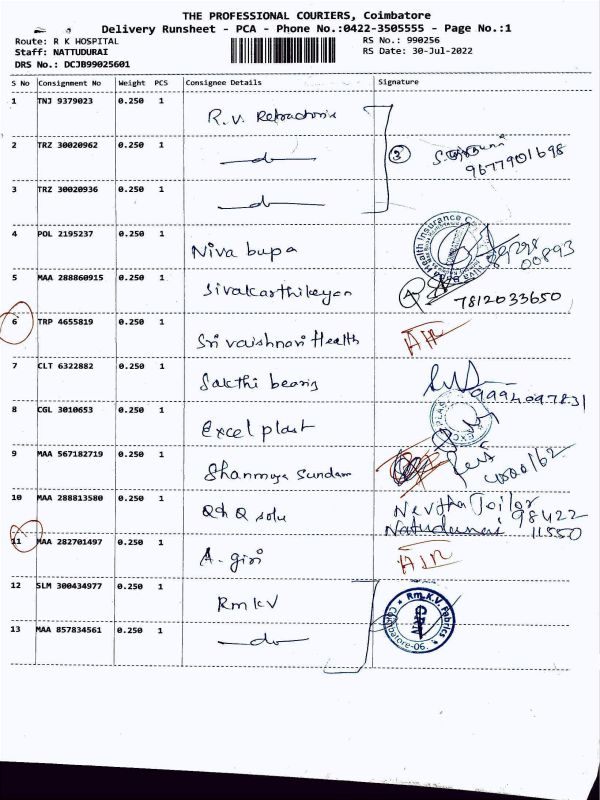 THE PROFESSIONAL COURIERS, Coimbatore
Delivery Runsheet - PCA - Phone No.:0422-3505555 - Page No.:1
Route: R K HOSPITAL
RS No.: 990256
Staff: NATTUDURAI
RS Date: 30-Jul-2022
DRS No.: DCJB99025601
S No Consignment No Weight PCS Consignee Details Signature
1 TNJ 9379023 0.250 1 R.V.
2 TRZ 30020962 0.250 1 do 3
9677901698
3 TRZ 30020936 0.250 1 do
4 POL 2195237 0.250 1 Niva bupa
Health Insurance
00893
5 MAA 288860915 0.250 1 Sivakarthikeyan 7812033650
6 TRP 4655819 0.250 1 Sri vaishnavi Health
7 CLT 6322882 0.250 1 Sakthi bearing
9994097831
8 CGL 3010653 0.250 1 Excel plast
9 MAA 567182719 0.250 1 Shanmuga Sundam
10 MAA 288813580 0.250 1 Q solu
98422
11550
11 MAA 282701497 0.250 1 A. giri
12 SLM 300434977 0.250 1 RmKV
Rm.K.V. Fabrics
Coimbatore-06.
13 MAA 857834561 0.250 1 do